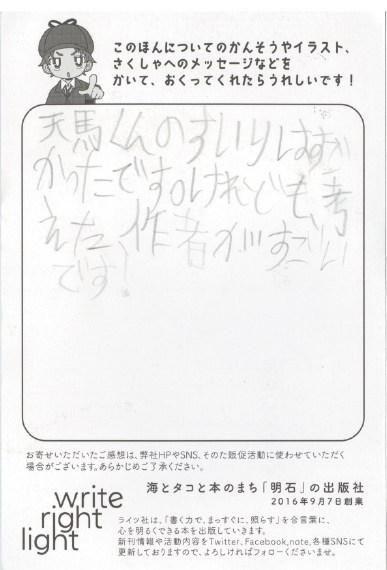 このほんについてのかんそうやイラスト、
さくしゃへのメッセージなどを
かいて、おくってくれたらうれしいです！
天馬くんのすいりはすご
かったです。けれども、考
えた、作者がすごい
です！
お寄せいただいたご感想は、弊社HPやSNS、そのた販促活動に使わせていただく
場合がございます。あらかじめご了承ください。
海とタコと本のまち「明石」の出版社
2016年9月7日創業
write
right
light
ライツ社は、「書く力で、まっすぐに、照らす」を合言葉に、
心を明るくできる本を出版していきます。
新刊情報や活動内容をTwitter、Facebook,note,各種SNSにて
更新しておりますので、よろしければフォローくださいませ。